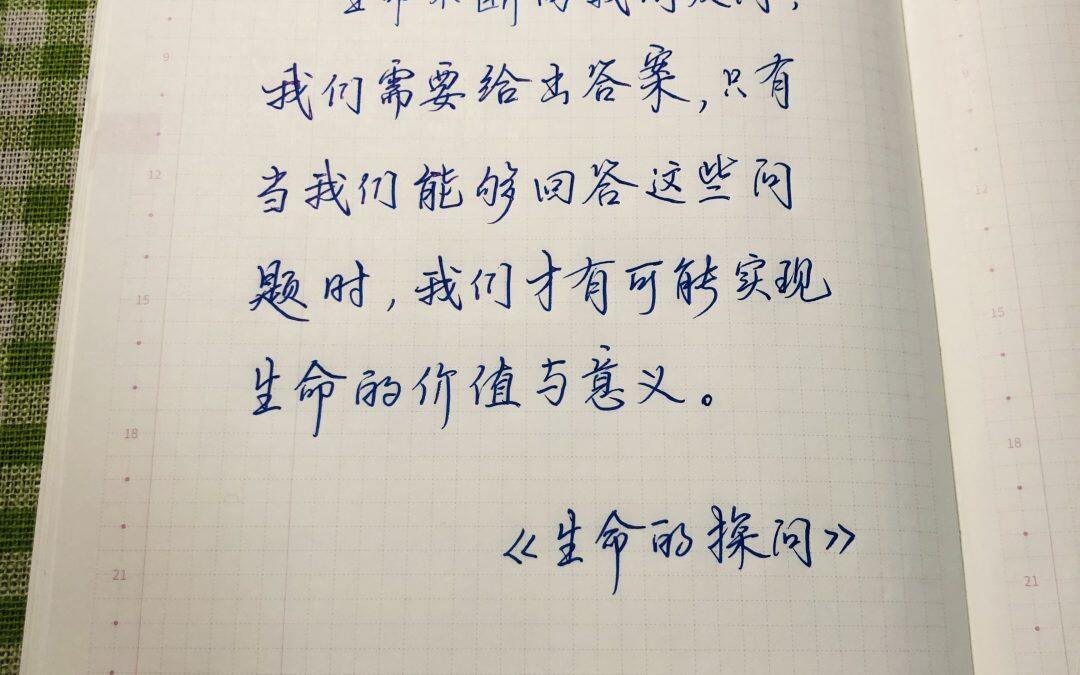 生命不断向我们发问，
我们需要给出答案，只有
当我们能够回答这些问
题时，我们才有可能实现
生命的价值与意义。
《生命的探问》
9
12
15
18
21
12
15
18
21